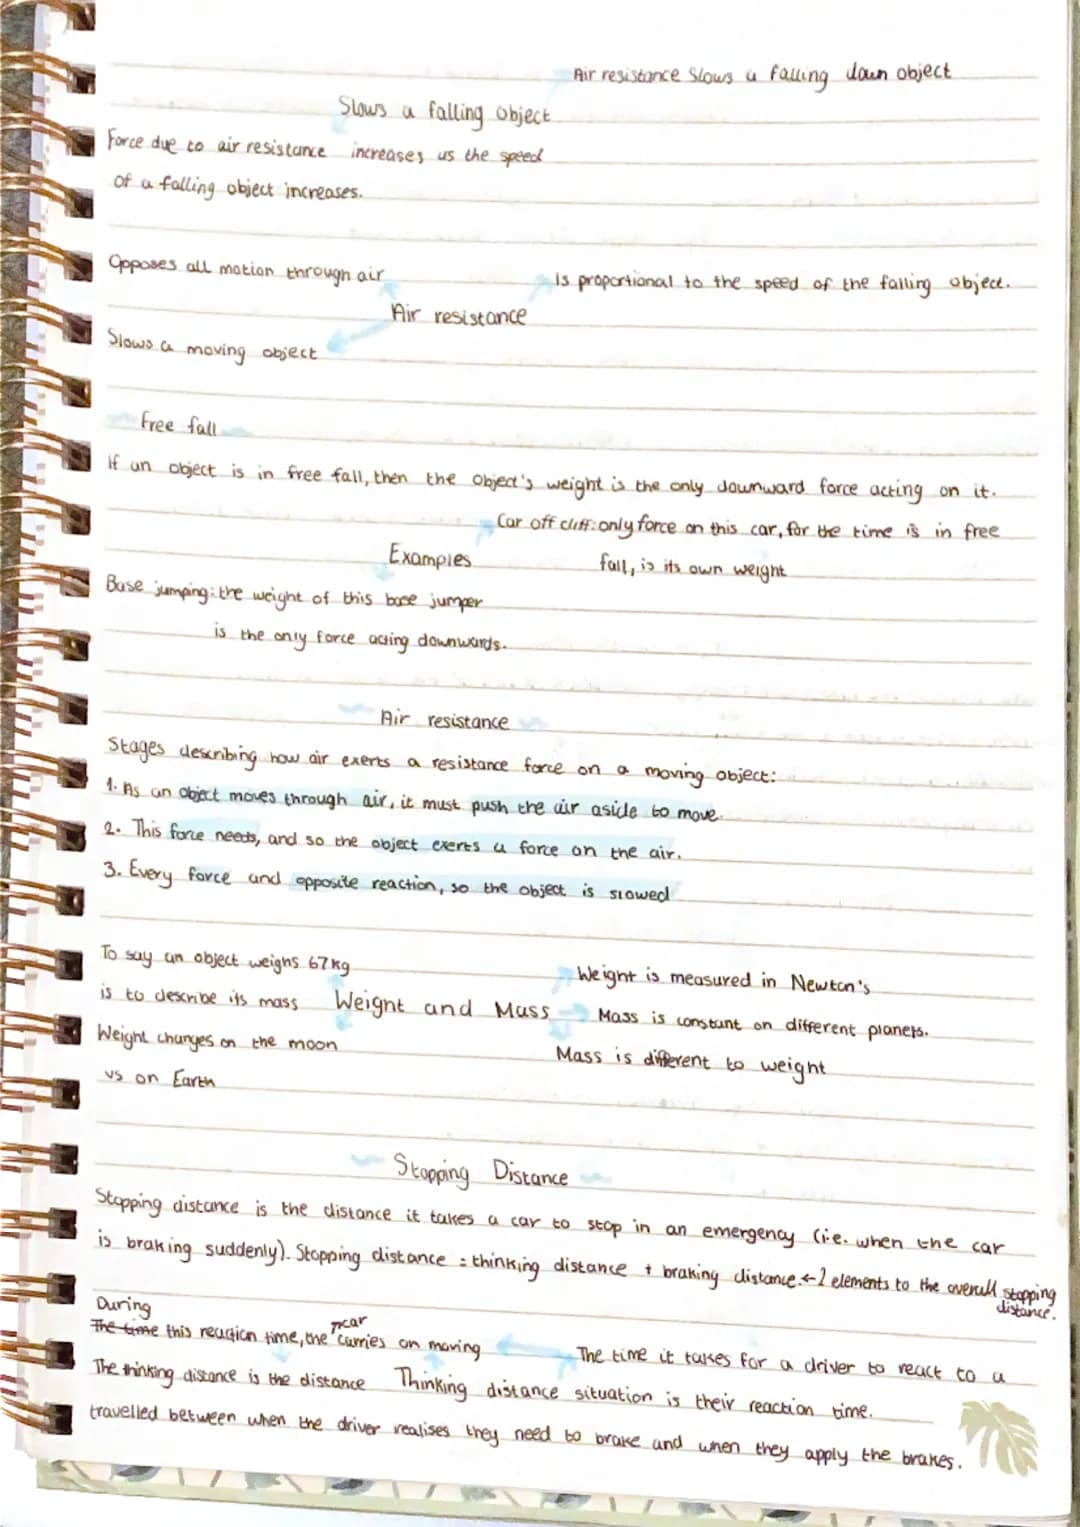 Air resistance slows a falling down object
Slows a falling object
Force due to air resistance increases as the speed
of a falling object increases.
Opposes all motion through air
Is proportional to the speed of the falling object.
Air resistance
Slows a moving object
Free fall
If an object is in free fall, then the object's weight is the only downward force acting on it.
Car off cliff: only force on this car, for the time is in free
Examples
fall, is its own weight
Base jumping: the weight of this base jumper
is the only force acting downwards.
Air resistance
Stages describing how air exerts a resistance force on a moving object:
1. As an object moves through air, it must push the air aside to move.
2. This force needs, and so the object exerts a force on the air.
3. Every force and opposite reaction, so the object is slowed
To say an object weighs 67kg
Weight is measured in Newton's
is to describe its mass
Weight and Mass
Mass is constant on different planets.
Weight changes on the moon
Mass is different to weight
vs on Earth
Stopping Distance
Stopping distance is the distance it takes a car to stop in an emergency (i.e. when the car
is braking suddenly). Stopping distance = thinking distance + braking distance.← 2 elements to the overall stopping
distance.
During
The time this reaction time, the car carries on moving
The time it takes for a driver to react to a
The thinking distance is the distance
Thinking distance
situation is their reaction time.
travelled between when the driver realises they need to brake and when they apply the brakes.